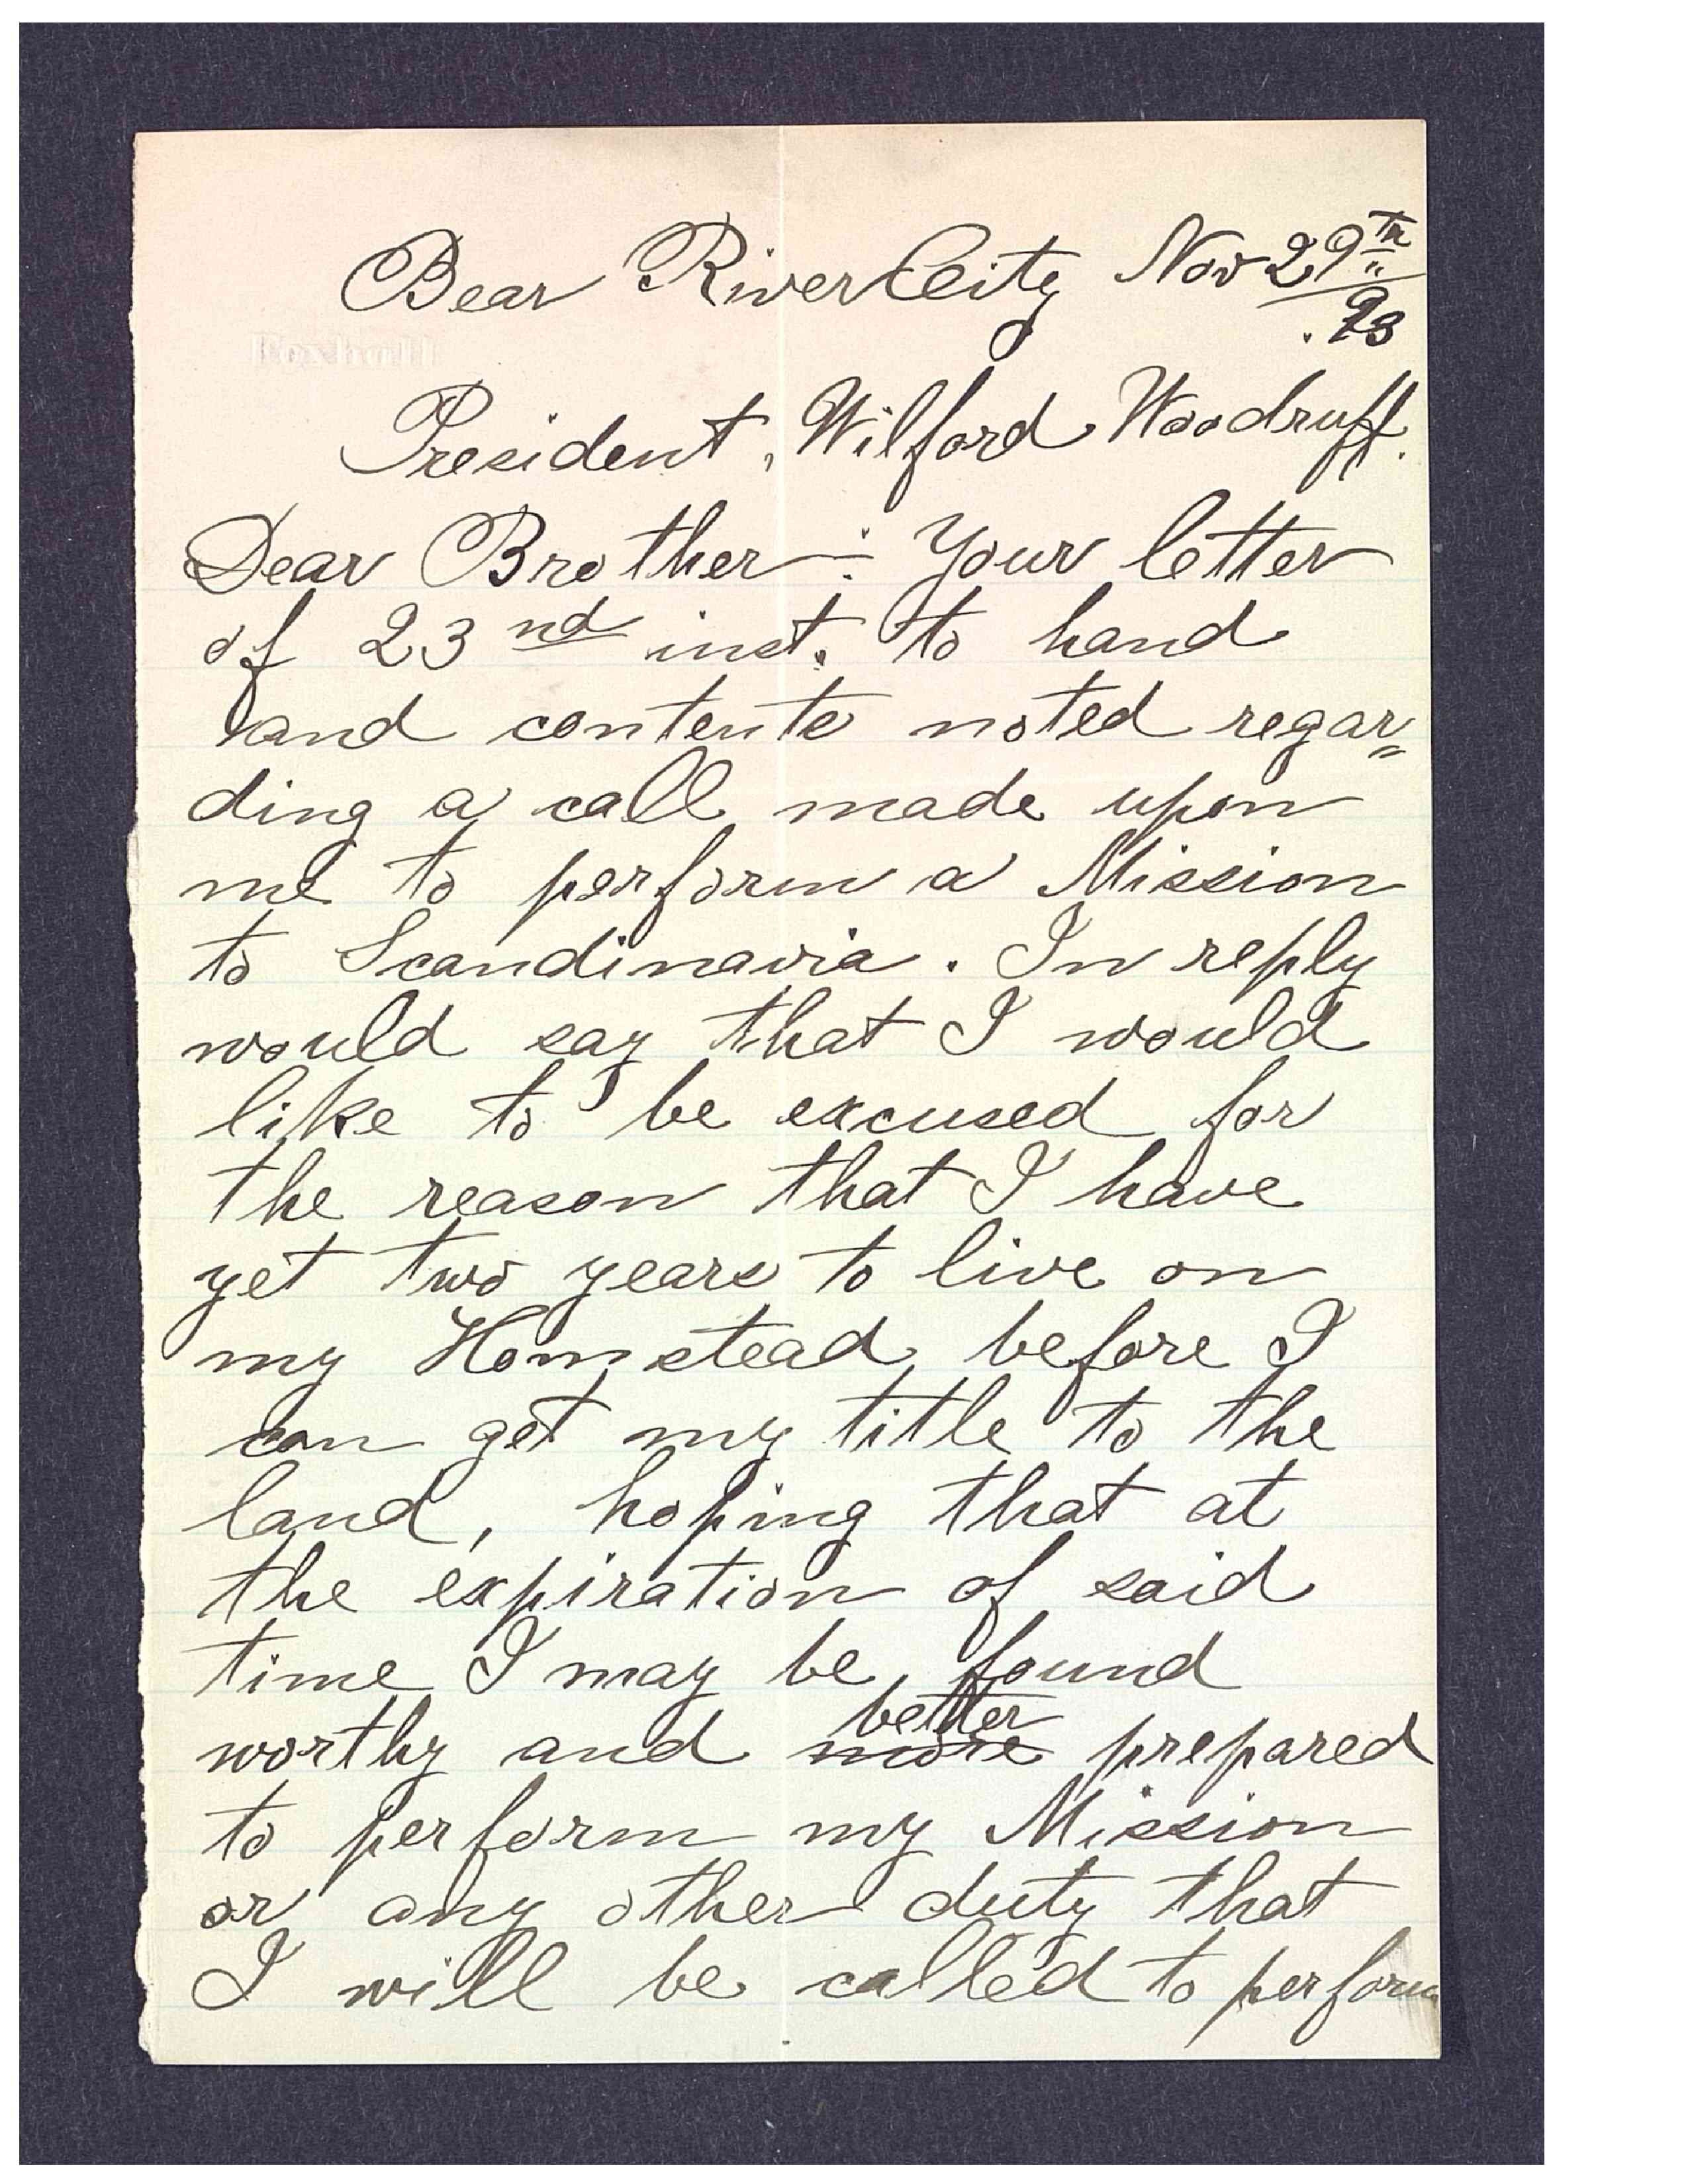 Bear River City Nov 29th
93
President, Wilford Woodruff.
Dear Brother: Your letter
of 23nd inst. to hand
and contents noted regar=
ding a call made upon
me to perform a Mission
to Scandinavia. In reply
would say that I would
like to be excused for
the reason that I have
yet two years to live on
my Homstead before I
can get my title to the
land, hoping that at
the expiration of said
time I may be found
better
worthy and more prepared
to perform my Mission
or any other duty that
I will be called to perform